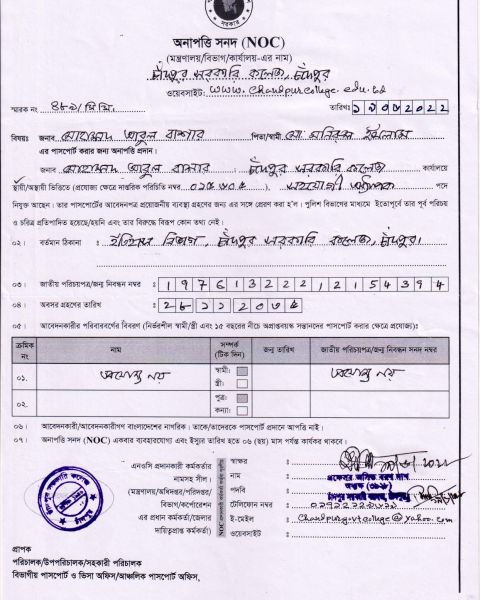 সরকার
অনাপত্তি সনদ (NOC)
(মন্ত্রণালয়/বিভাগ/কার্যালয়-এর নাম)
চাঁদপুর সরকারি কলেজ, চাঁদপুর
ওয়েবসাইট: www.chandpurcollege.edu.bd
স্মারক নং ৪৮৯/সি.সি. তারিখঃ
বিষয়ঃ জনাব মোহাম্মদ আবুল বাশার পিতা/স্বামী মো: মনিরুল ইসলাম
এর পাসপোর্ট করার জন্য অনাপত্তি প্রদান।
জনাব মোহাম্মদ আবুল বাশার, চাঁদপুর সরকারি কলেজ কার্যালয়ে
স্থায়ী/অস্থায়ী ভিত্তিতে (প্রযোজ্য ক্ষেত্রে দাপ্তরিক পরিচিতি নম্বর), সহযোগী অধ্যাপক পদে
নিযুক্ত আছেন। তার পাসপোর্টের আবেদনপত্র প্রয়োজনীয় ব্যবস্থা গ্রহণের জন্য এর সঙ্গে প্রেরণ করা হ'ল। পুলিশ বিভাগের মাধ্যমে ইতোপূর্বে তার পূর্ব পরিচয়
ও চরিত্র প্রতিপাদিত হয়েছে/হয়নি এবং তার বিরুদ্ধে বিরূপ কোন তথ্য নেই।
০২। বর্তমান ঠিকানা ঃ ইতিহাস বিভাগ, চাঁদপুর সরকারি কলেজ, চাঁদপুর।
০৩। জাতীয় পরিচয়পত্র/জন্ম নিবন্ধন নম্বর ঃ 19761322212154394
০৪। অবসর গ্রহণের তারিখ ঃ
০৫। আবেদনকারীর পরিবারবর্গের বিবরণ (নির্ভরশীল স্বামী/স্ত্রী এবং ১৫ বছরের নীচে অপ্রাপ্তবয়স্ক সন্তানদের পাসপোর্ট করার ক্ষেত্রে প্রযোজ্য)ঃ
ক্রমিক নং নাম সম্পর্ক (টিক দিন) জন্ম তারিখ জাতীয় পরিচয়পত্র/জন্ম নিবন্ধন সনদ নম্বর
০১. প্রযোজ্য নয় স্বামী: প্রযোজ্য নয়
স্ত্রী:
০২. পুত্র:
কন্যা:
০৬। আবেদনকারী/আবেদনকারীগণ বাংলাদেশের নাগরিক। তাকে/তাদেরকে পাসপোর্ট প্রদানে আপত্তি নাই।
০৭। অনাপত্তি সনদ (NOC) একবার ব্যবহারযোগ্য এবং ইস্যুর তারিখ হতে ০৬ (ছয়) মাস পর্যন্ত কার্যকর থাকবে।
এনওসি প্রদানকারী কর্মকর্তার স্বাক্ষর ঃ
নামসহ সীল। নাম ঃ প্রফেসর অসিত বরণ দাশ
(মন্ত্রণালয়/অধিদপ্তর/পরিদপ্তর/ পদবি ঃ অধ্যক্ষ
চাঁদপুর সরকারি কলেজ, চাঁদপুর।
বিভাগ/কর্পোরেশন টেলিফোন নম্বর ঃ
এর প্রধান কর্মকর্তা/জেলার ই-মেইল ঃ chandpurgovtcollege@yahoo.com
দায়িত্বপ্রাপ্ত কর্মকর্তা) ওয়েবসাইট ঃ
প্রাপক
পরিচালক/উপপরিচালক/সহকারী পরিচালক
বিভাগীয় পাসপোর্ট ও ভিসা অফিস/আঞ্চলিক পাসপোর্ট অফিস,